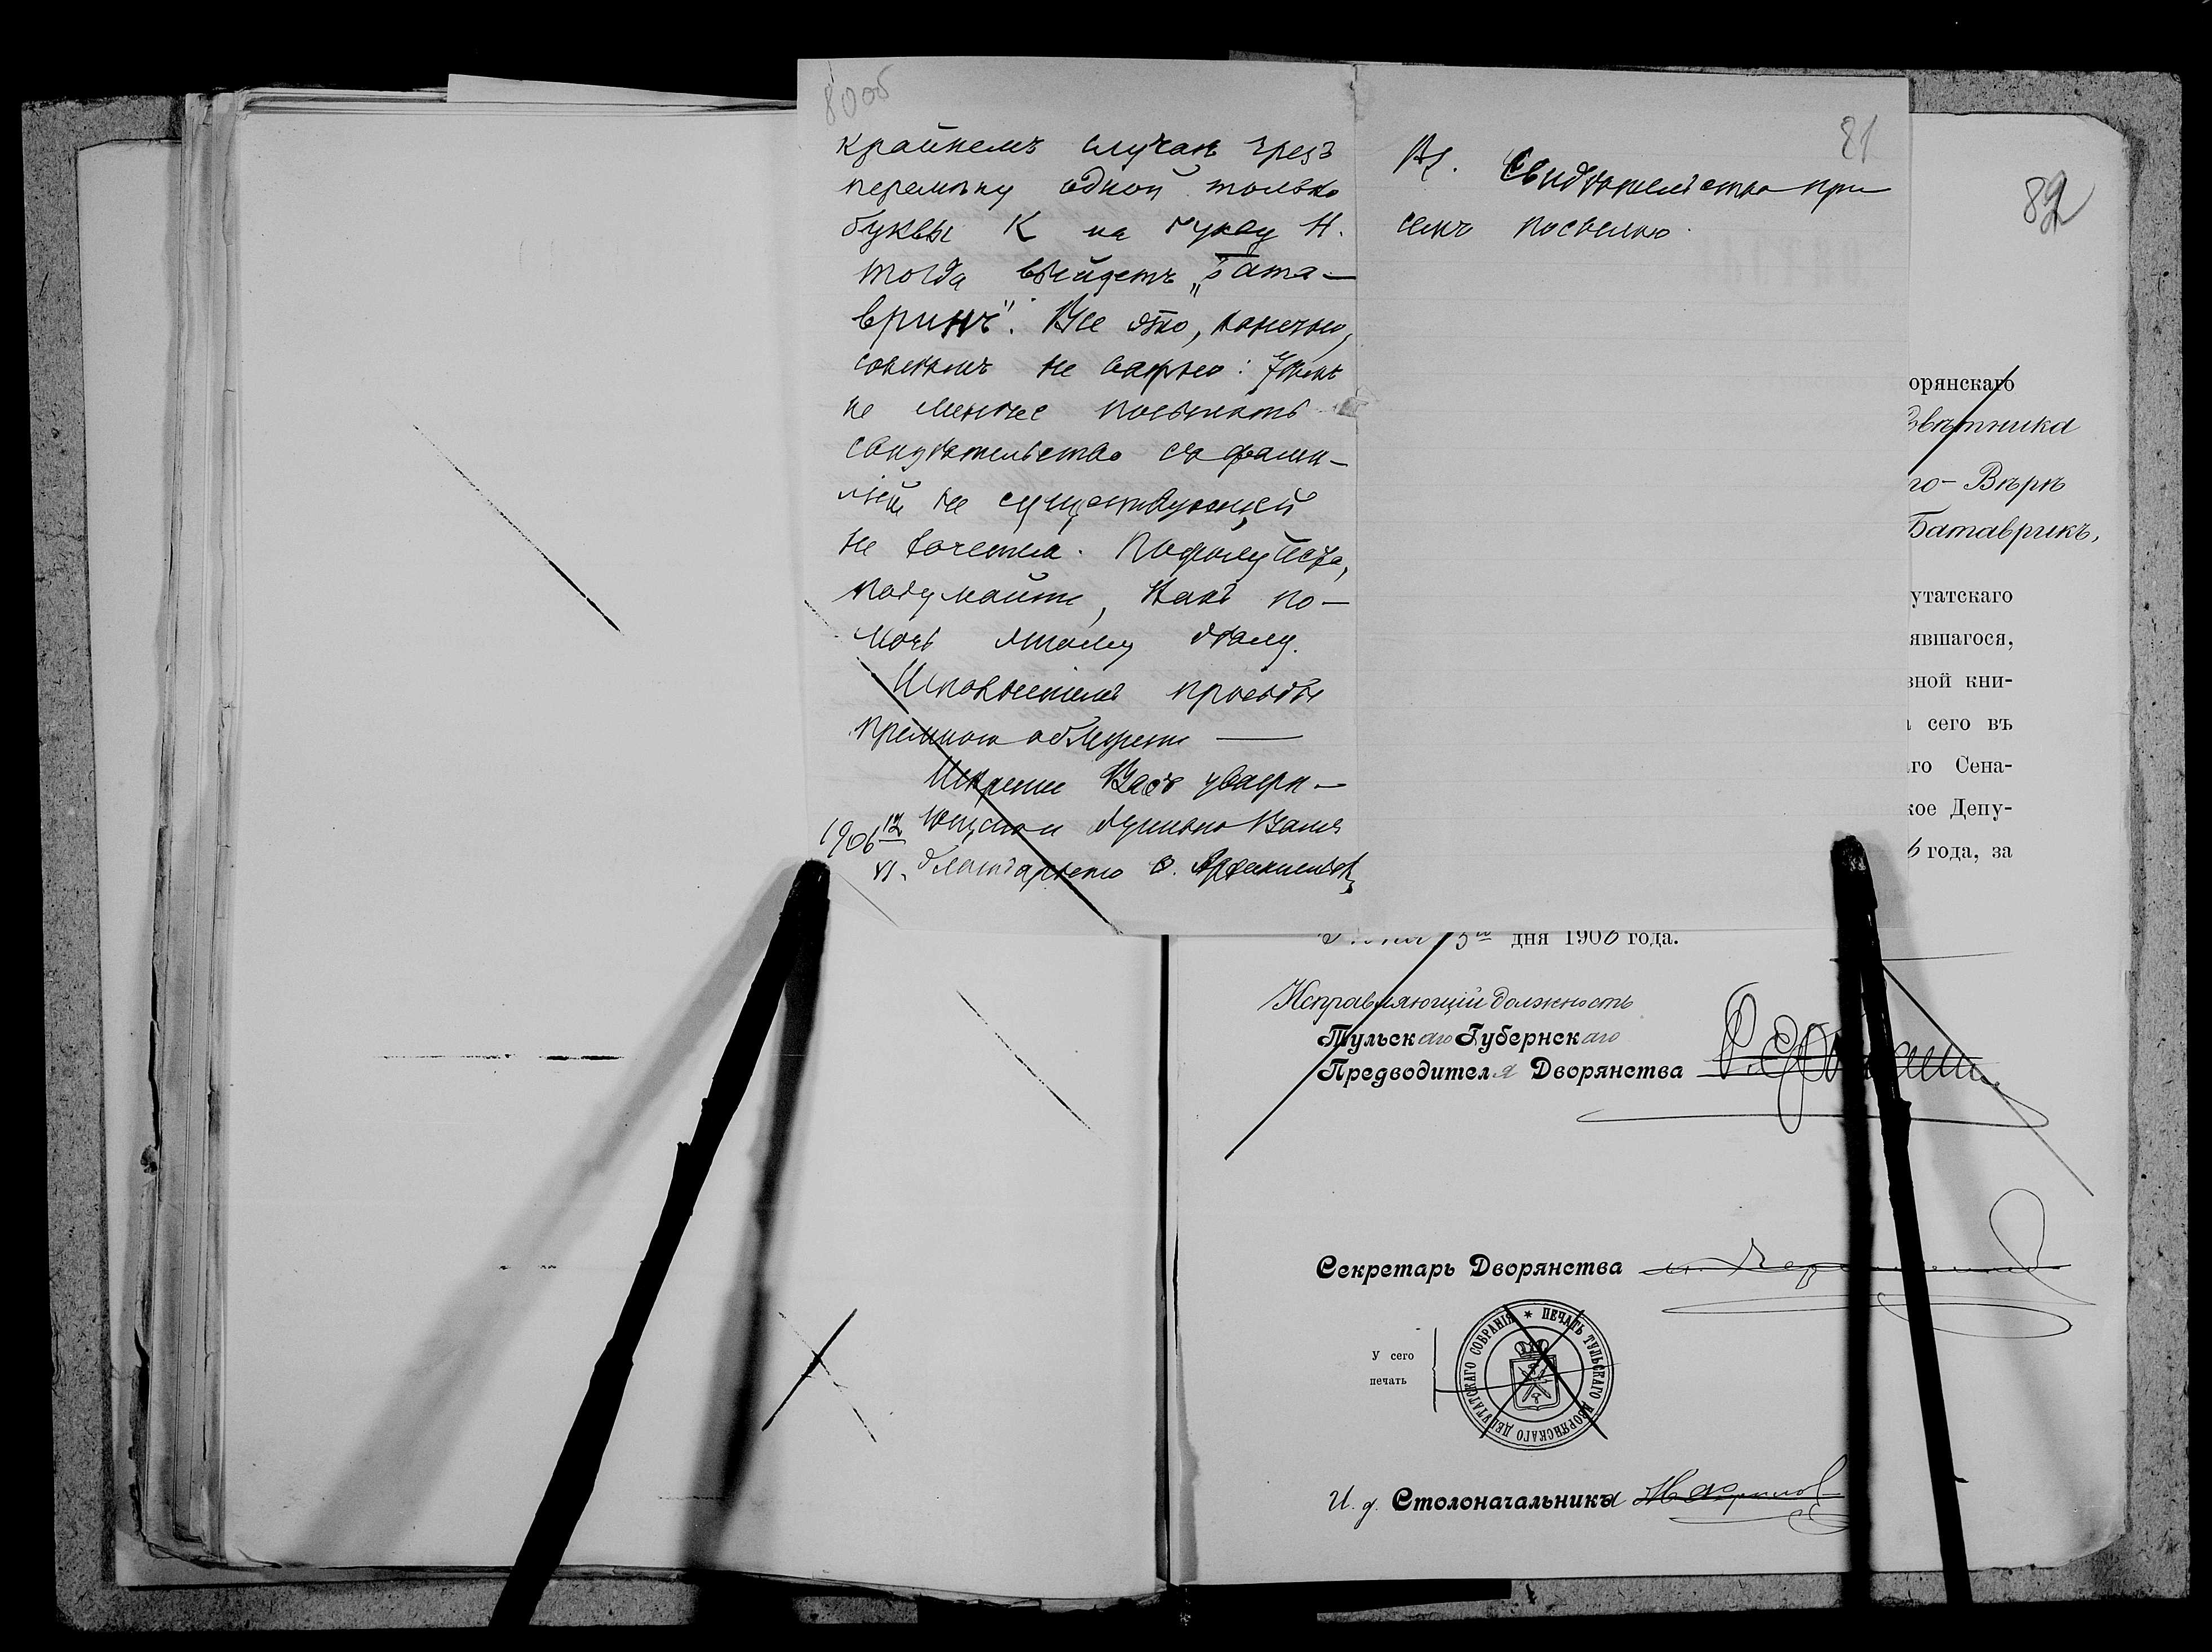 80об
крайнемъ случаѣ чрезъ
перемѣну одной только
буквы К на букву Н.
тогда выйдетъ „Бата-
вринъ". Все это, конечно,
совсѣмъ не важно: тѣмъ
не менѣе посылать
свидѣтельство съ фами-
ліей не существующей
не хочется. Пожалуйста,
подумайте, какъ по-
мочь этому дѣлу.
Исполненіемъ просьбы
премного обяжете —
Искренне Васъ уважа-
ющій и душевно Вамъ
1906 12/VI. благодарный
81
P.S. Свидѣтельство при
семъ посылаю.
82
орянскаго
вѣтника
го- Вѣрѣ
Батаврикъ,
утатскаго
явшагося,
вной кни-
сего въ
го Сена-
кое Депу-
6 года, за
дня 1906 года.
Исправляющій должность
Тульскаго Губернскаго
Предводителя Дворянства
Секретарь Дворянства
У сего
печать
ПЕЧАТЬ ТУЛЬСКАГО ДВОРЯНСКАГО ДЕПУТАТСКАГО СОБРАНІЯ
И. д. Столоначальника